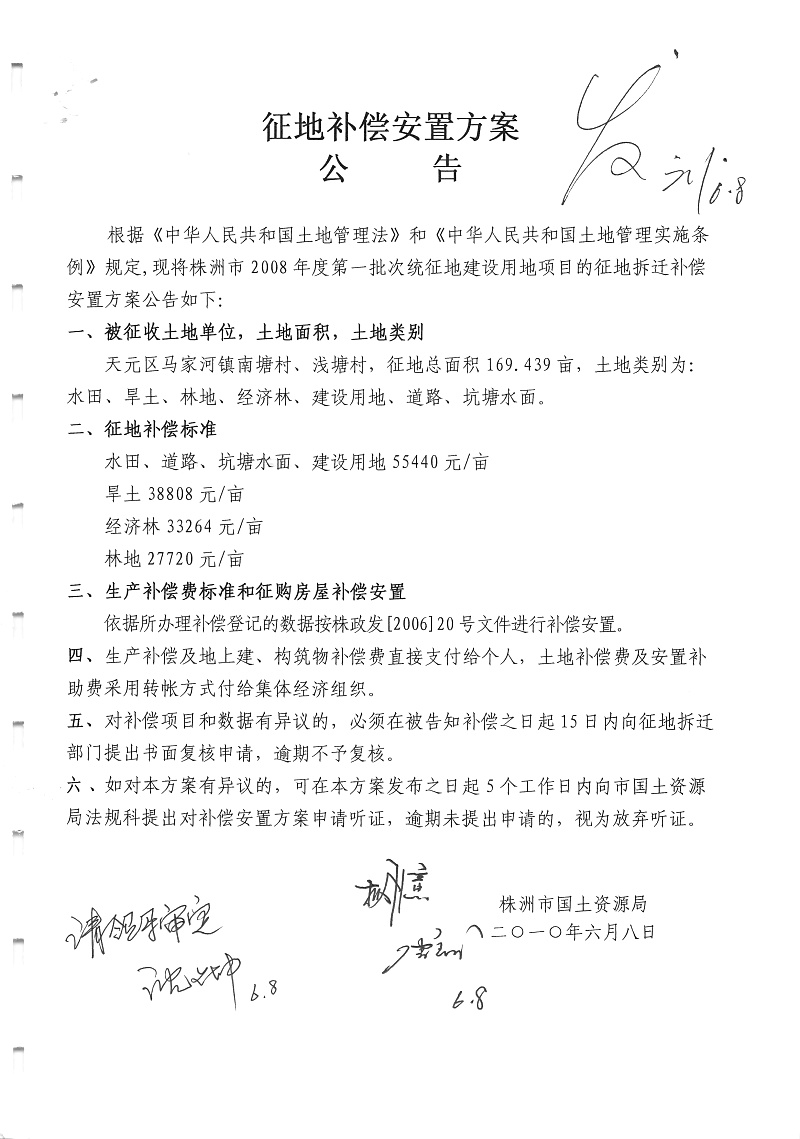 征地补偿安置方案
公 告
发
6.8
根据《中华人民共和国土地管理法》和《中华人民共和国土地管理实施条
例》规定,现将株洲市 2008 年度第一批次统征地建设用地项目的征地拆迁补偿
安置方案公告如下：
一、被征收土地单位，土地面积，土地类别
天元区马家河镇南塘村、浅塘村，征地总面积 169.439 亩，土地类别为：
水田、旱土、林地、经济林、建设用地、道路、坑塘水面。
二、征地补偿标准
水田、道路、坑塘水面、建设用地 55440 元/亩
旱土 38808 元/亩
经济林 33264 元/亩
林地 27720 元/亩
三、生产补偿费标准和征购房屋补偿安置
依据所办理补偿登记的数据按株政发[2006]20 号文件进行补偿安置。
四、生产补偿及地上建、构筑物补偿费直接支付给个人，土地补偿费及安置补
助费采用转帐方式付给集体经济组织。
五、对补偿项目和数据有异议的，必须在被告知补偿之日起 15 日内向征地拆迁
部门提出书面复核申请，逾期不予复核。
六、如对本方案有异议的，可在本方案发布之日起 5 个工作日内向市国土资源
局法规科提出对补偿安置方案申请听证，逾期未提出申请的，视为放弃听证。
株洲市国土资源局
二〇一〇年六月八日
请领导审定
6.8
6.8